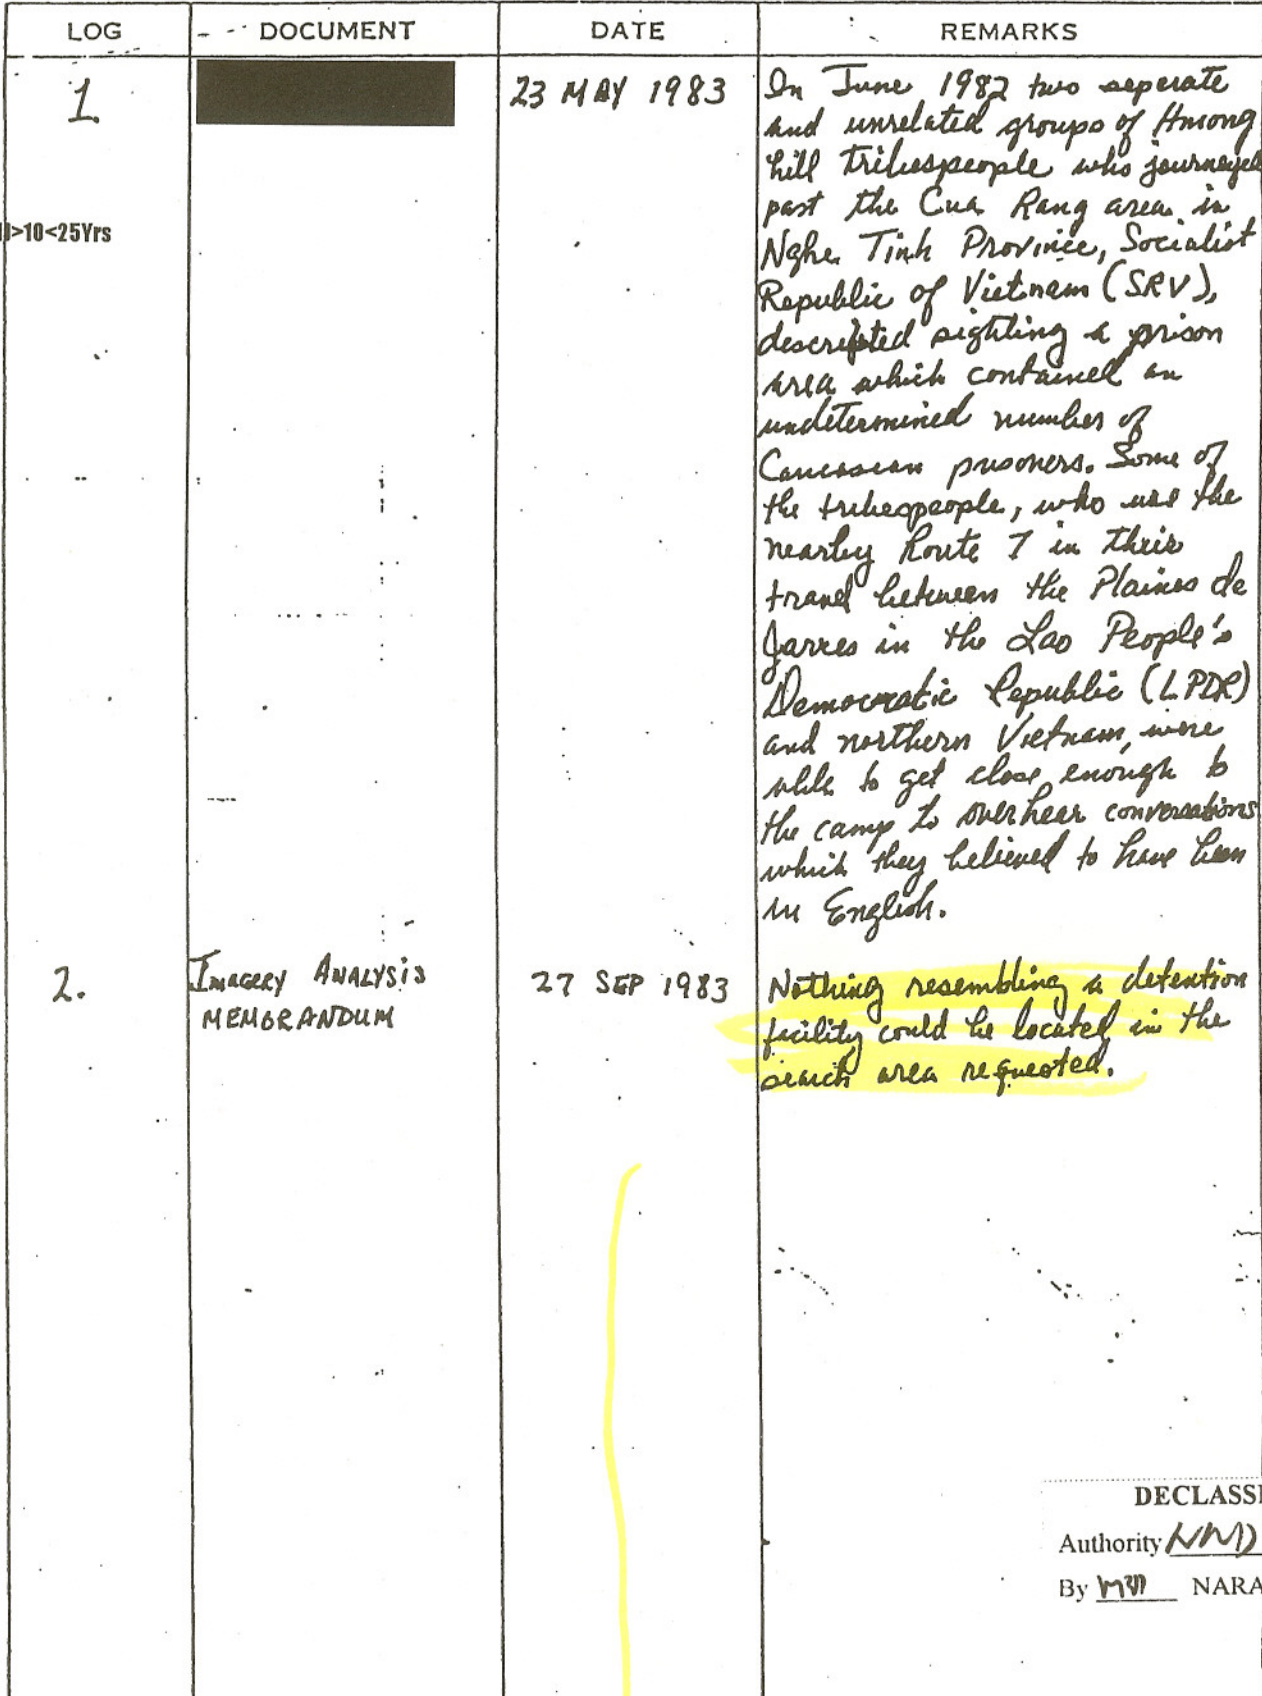 LOG DOCUMENT DATE REMARKS
1. 23 MAY 1983 In June 1982 two seperate
and unrelated groups of Hmong
hill tribespeople who journeyed
past the Cua Rang area in
>10<25Yrs
Nghe Tinh Province, Socialist
Republic of Vietnam (SRV),
described sighting a prison
area which contained an
undetermined number of
Caucasian prisoners. Some of
the tribespeople, who use the
nearby Route 7 in their
travel between the Plaines de
Jarres in the Lao People's
Democratic Republic (LPDR)
and northern Vietnam, were
able to get close enough to
the camp to overhear conversations
which they believed to have been
in English.
2. IMAGERY ANALYSIS 27 SEP 1983 Nothing resembling a detention
MEMORANDUM facility could be located in the
search area requested.
DECLASSI
Authority NND
By NARA